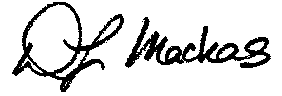 DL Mackas